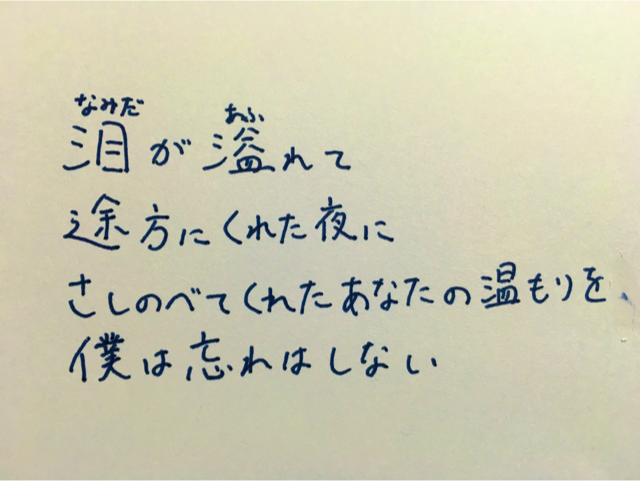 なみだ あふ
泪が溢れて
途方にくれた夜に
さしのべてくれたあなたの温もりを、
僕は忘れはしない